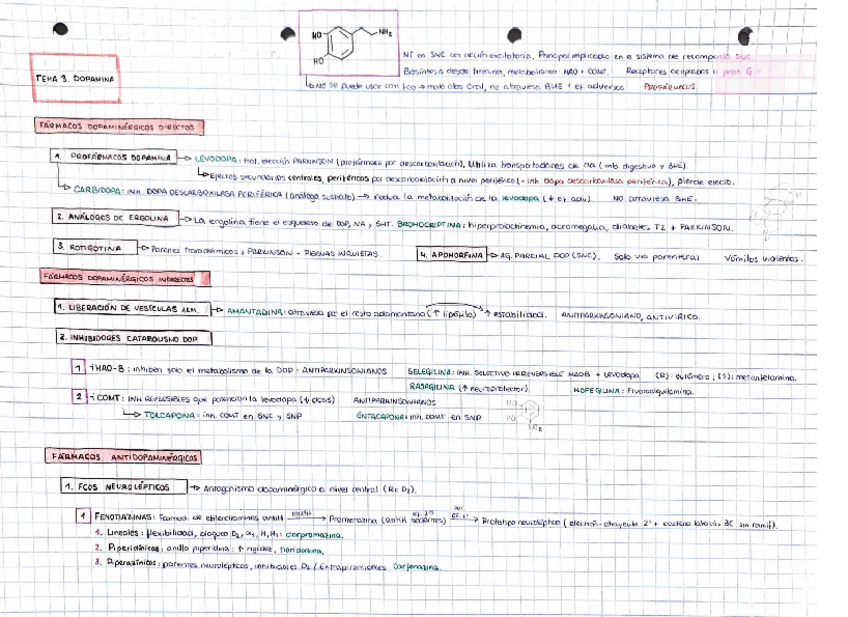 HO
NH₂
HO
NT en SNC con acción excitatoria. Principal implicado en el sistema de recompensa SNC
TEMA 3. DOPAMINA
Biosíntesis desde tirosina, metabolismo: MAO + COMT. Receptores acoplados a prot G
NO se puede usar con fco → mala abs oral, no atraviesa BHE + ef. adversos PROFÁRMACOS.
FÁRMACOS DOPAMINÉRGICOS DIRECTOS
1. PROFÁRMACOS DOPAMINA → LEVODOPA: trat. elección PARKINSON (profármaco por descarboxilación), Utiliza transportadores de aa (mb digestiva y BHE)
Efectos secundarios centrales, periféricos por descarboxilación a nivel periférico (+ inh. dopa descarboxilasa periférica), pierde efecto.
CARBIDOPA: INH. DOPA DESCARBOXILASA PERIFÉRICA (análogo sustrato) → reduce la metabolización de la levodopa (↓ ef. adv) NO atraviesa BHE.
2. ANÁLOGOS DE ERGOLINA → La ergolina tiene el esqueleto de DOP, NA, 5HT. BROMOCRIPTINA: hiperprolactinemia, acromegalia, diabetes T2 + PARKINSON.
3. ROTIGOTINA → Parches transdérmicos, PARKINSON + PIERNAS INQUIETAS. 4. APOMORFINA → AG. PARCIAL DOP (SNC). Solo vía parenteral Vómitos violentos.
FÁRMACOS DOPAMINÉRGICOS INDIRECTOS
1. LIBERACIÓN DE VESÍCULAS ALM. → AMANTADINA: atraviesa por el resto adamantano (↑ lipófilo) ↑ estabilidad. ANTIPARKINSONIANO, ANTIVÍRICO.
2. INHIBIDORES CATABOLISMO DOP
1 iMAO-B: inhiben solo el metabolismo de la DOP - ANTIPARKINSONIANOS SELEGILINA: INH. SELECTIVO IRREVERSIBLE MAOB + Levodopa (R): eutómero; (S): metanfetamina.
RASAGILINA (↑ neuroprotector) MOFEGILINA: Fluoroalquilamina.
2 iCOMT: INH REVERSIBLES que potencian la levodopa (↓ dosis) ANTIPARKINSONIANOS
TOLCAPONA: inh. COMT en SNC y SNP ENTACAPONA: inh. COMT en SNP
FÁRMACOS ANTIDOPAMINÉRGICOS
1. FCOS NEUROLÉPTICOS → Antagonismo dopaminérgico a nivel central (R: D₂).
1 FENOTIAZINAS: Prometazina (antih sedantes) → Prototipo neuroléptico (electrón-atrayente 2' + cadena lateral 3C sin ramif).
1. Lineales: flexibilidad, bloqueo D₂, α₁, M, H₁: clorpromazina.
2. Piperidínicas: anillo piperidina: ↑ rigidez, Tioridazina.
3. Piperazínicas: potentes neurolépticos, inhibidores D₂ / Extrapiramidales Carfenazina.